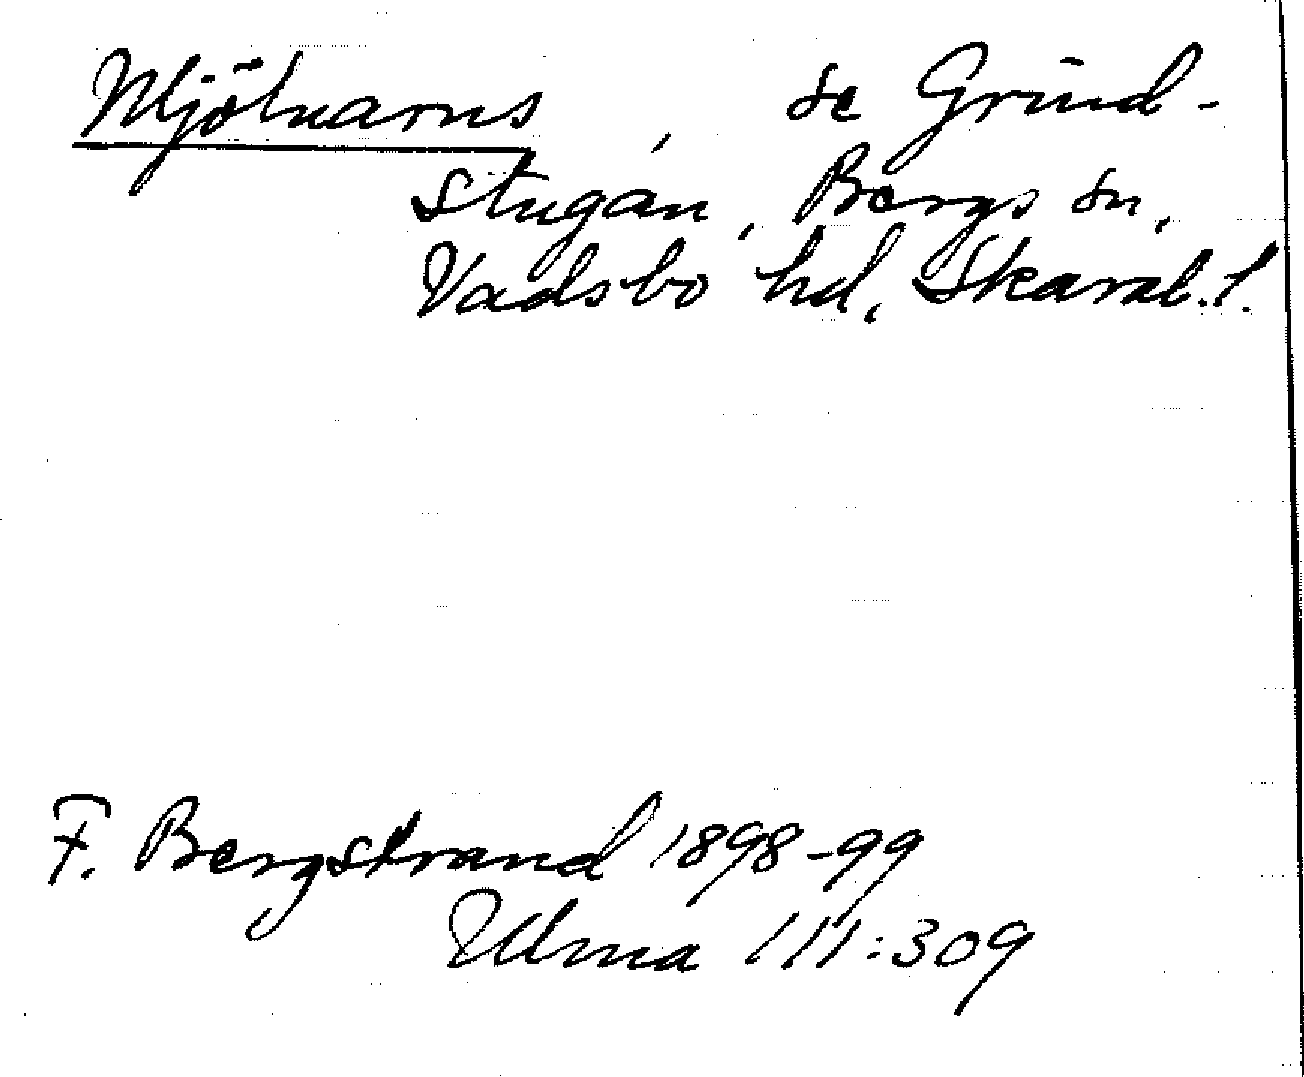 Mjölnarns, se Grind-
stugan, Bergs sn,
Vadsbo hd, Skarab. l.
F. Bergstrand 1898-99
Ulma 111:309